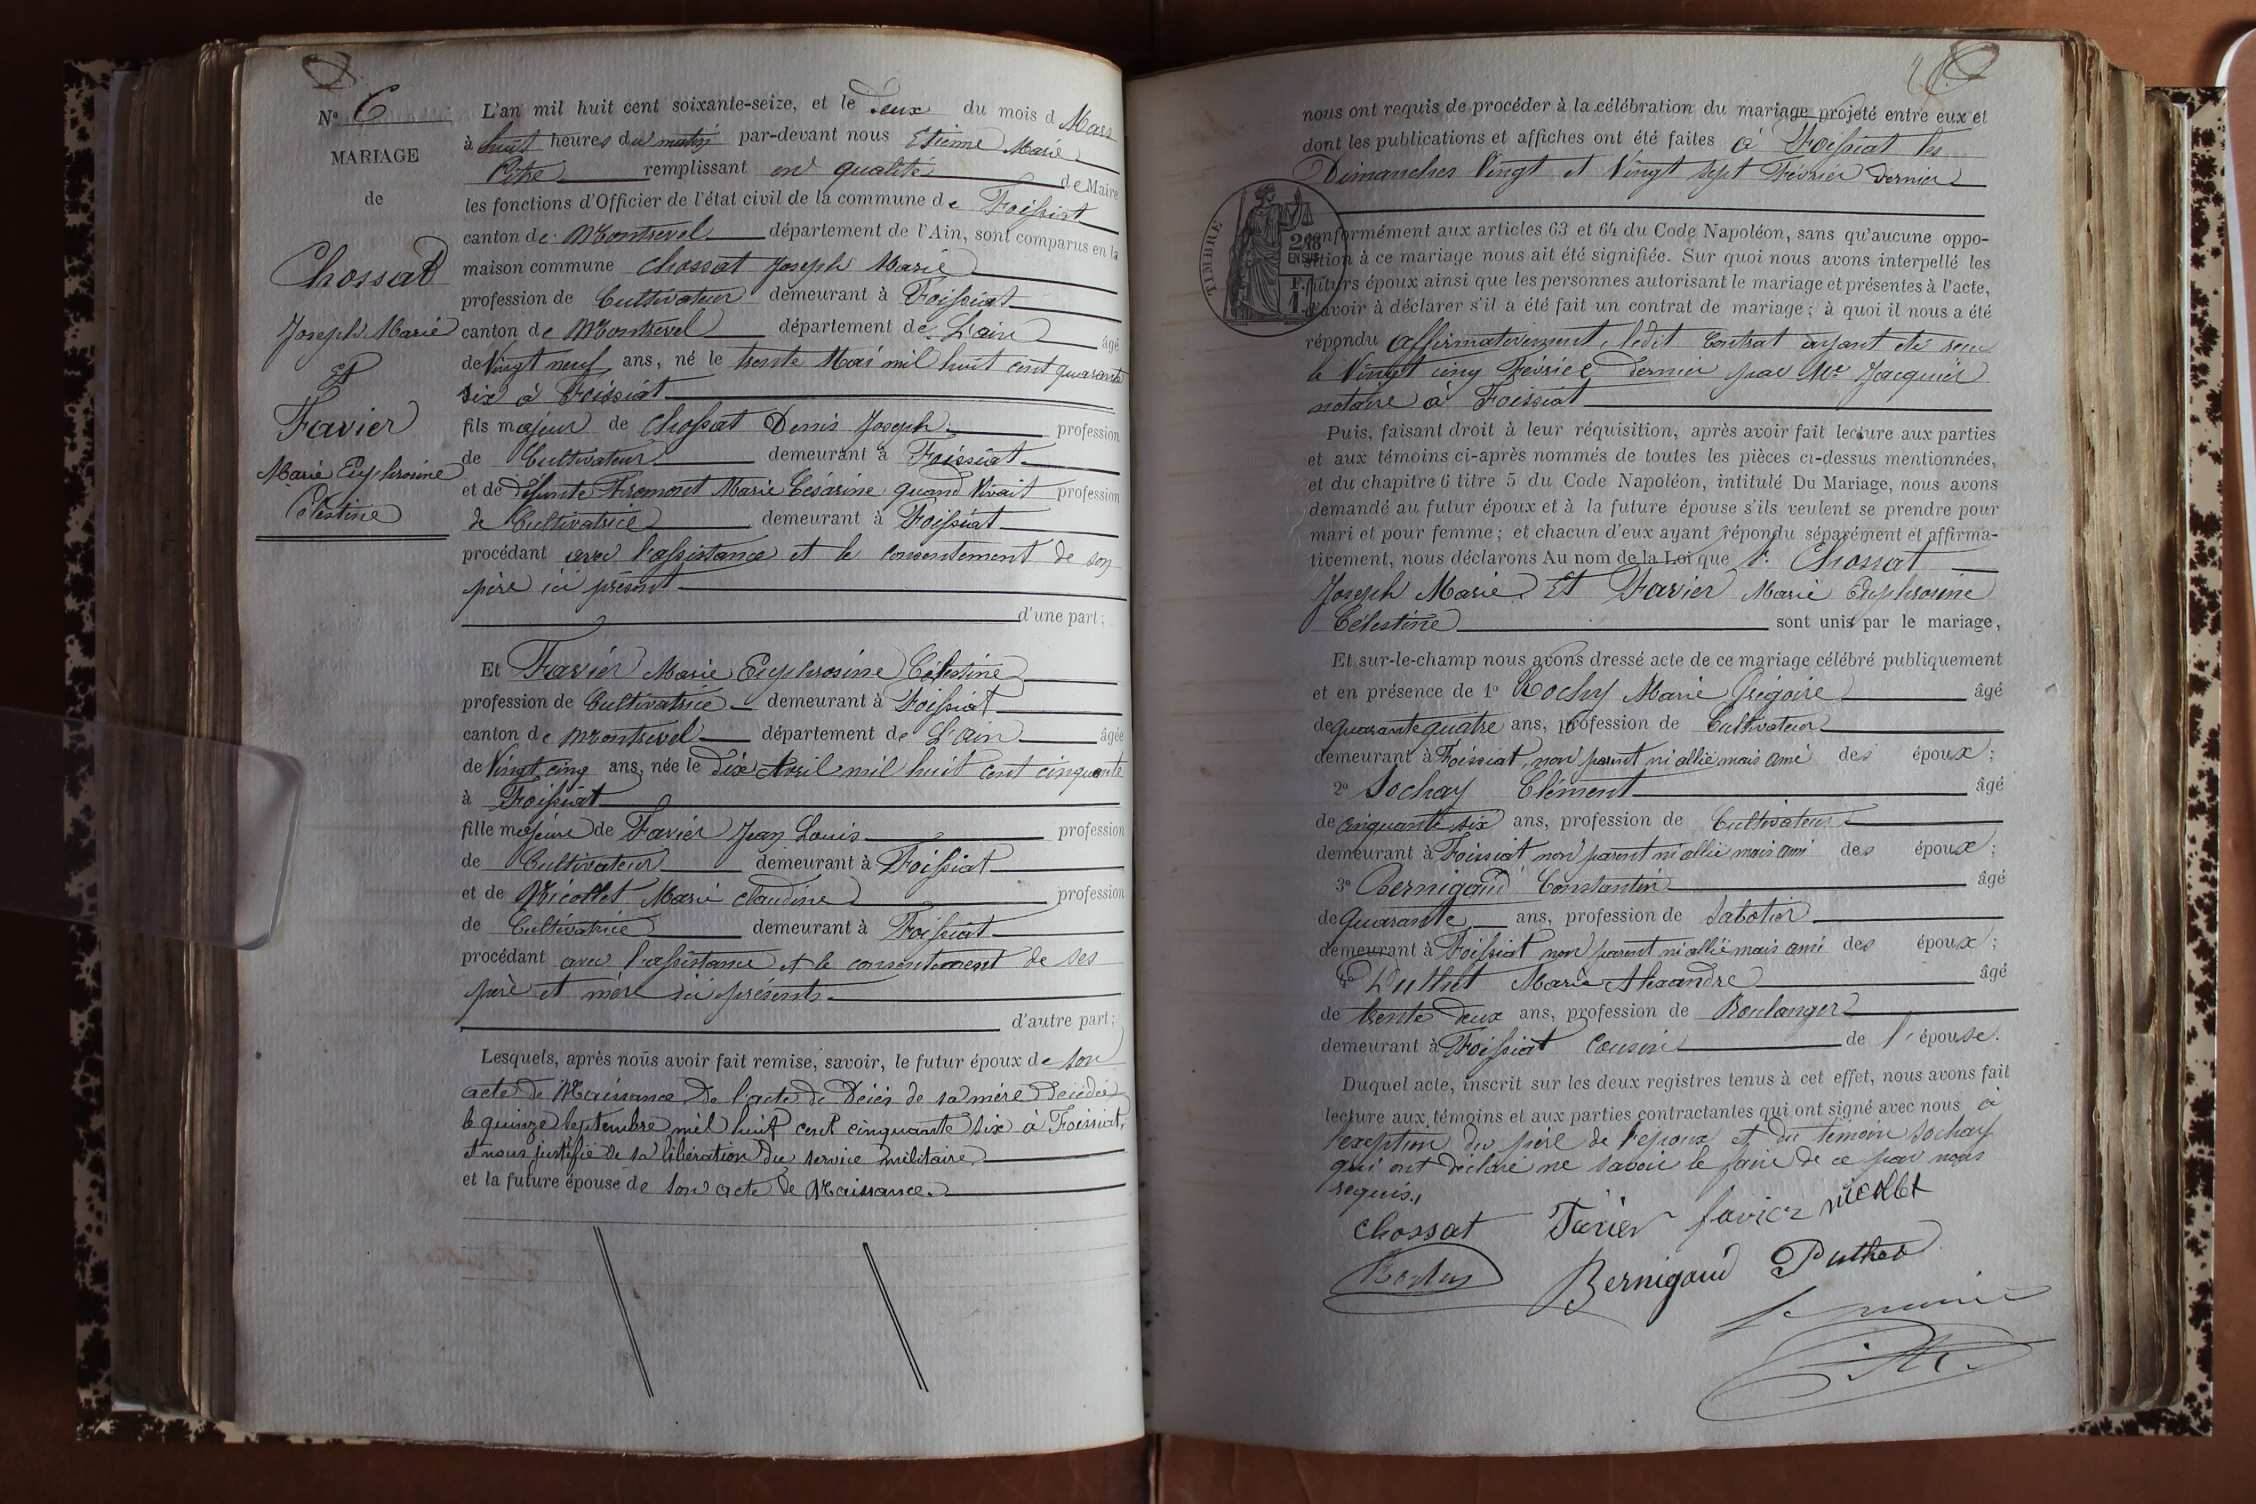 Nº 6
MARIAGE
de
Chossat
Joseph Marie
Et
Favier
Marie Euphrosine
Célestine
L'an mil huit cent soixante-seize, et le Deux du mois d Mars
à huit heures du matin par-devant nous Etienne Marie
Pitre remplissant en qualité de Maire
les fonctions d'Officier de l'état civil de la commune de Foissiat
canton de Montrevel département de l'Ain, sont comparus en la
maison commune Chossat Joseph Marie
profession de Cultivateur demeurant à Foissiat
canton de Montrevel département de L'ain âgé
de Vingt neuf ans, né le trente Mai mil huit cent quarante
six à Foissiat
fils majeur de Chossat Denis Joseph profession
de Cultivateur demeurant à Foissiat
et de défunte Fromont Marie Césarine quand Vivait profession
de Cultivatrice demeurant à Foissiat
procédant avec l'assistance et le consentement de son
père ici présent
d'une part;
Et Favier Marie Euphrosine Célestine
profession de Cultivatrice demeurant à Foissiat
canton de Montrevel département de L'ain âgée
de Vingt cinq ans, née le Dix Avril mil huit cent cinquante
à Foissiat
fille majeure de Favier Jean Louis profession
de Cultivateur demeurant à Foissiat
et de Nicollet Marie Claudine profession
de Cultivatrice demeurant à Foissiat
procédant avec l'assistance et le consentement de ses
père et mère ici présents
d'autre part;
Lesquels, après nous avoir fait remise, savoir, le futur époux de son
acte de Naissance De l'acte de Décès de sa mère Décédée
le quinze Septembre mil huit cent cinquante six à Foissiat,
et nous justifie de sa libération du service militaire
et la future épouse de son acte de Naissance.
nous ont requis de procéder à la célébration du mariage projeté entre eux et
dont les publications et affiches ont été faites à Foissiat les
Dimanches Vingt et Vingt sept Février dernier
TIMBRE
conformément aux articles 63 et 64 du Code Napoléon, sans qu'aucune oppo-
sition à ce mariage nous ait été signifiée. Sur quoi nous avons interpellé les
futurs époux ainsi que les personnes autorisant le mariage et présentes à l'acte,
d'avoir à déclarer s'il a été fait un contrat de mariage; à quoi il nous a été
répondu affirmativement, ledit Contrat ayant été reçu
le Vingt cinq Février dernier par Me Jacquier
notaire à Foissiat
Puis, faisant droit à leur réquisition, après avoir fait lecture aux parties
et aux témoins ci-après nommés de toutes les pièces ci-dessus mentionnées,
et du chapitre 6 titre 5 du Code Napoléon, intitulé Du Mariage, nous avons
demandé au futur époux et à la future épouse s'ils veulent se prendre pour
mari et pour femme; et chacun d'eux ayant répondu séparément et affirma-
tivement, nous déclarons Au nom de la Loi que Chossat
Joseph Marie Et Favier Marie Euphrosine
Célestine sont unis par le mariage,
Et sur-le-champ nous avons dressé acte de ce mariage célébré publiquement
et en présence de 1º Rochy Marie Grégoire âgé
de quarante quatre ans, profession de Cultivateur
demeurant à Foissiat, non parent ni allié mais ami des époux;
2º Sochay Clément âgé
de cinquante six ans, profession de Cultivateur
demeurant à Foissiat non parent ni allié mais ami des époux;
3º Bernigaud Constantin âgé
de quarante ans, profession de Sabotier
demeurant à Foissiat non parent ni allié mais ami des époux;
4º Puthet Marie Alexandre âgé
de trente deux ans, profession de Boulanger
demeurant à Foissiat Cousin de l'épouse.
Duquel acte, inscrit sur les deux registres tenus à cet effet, nous avons fait
lecture aux témoins et aux parties contractantes qui ont signé avec nous à
l'exeption du père de l'époux et du témoin Sochay
qui ont déclaré ne savoir le faire de ce par nous
requis.
Chossat Favier favier nicollet
Bernigaud Puthet
Le maire